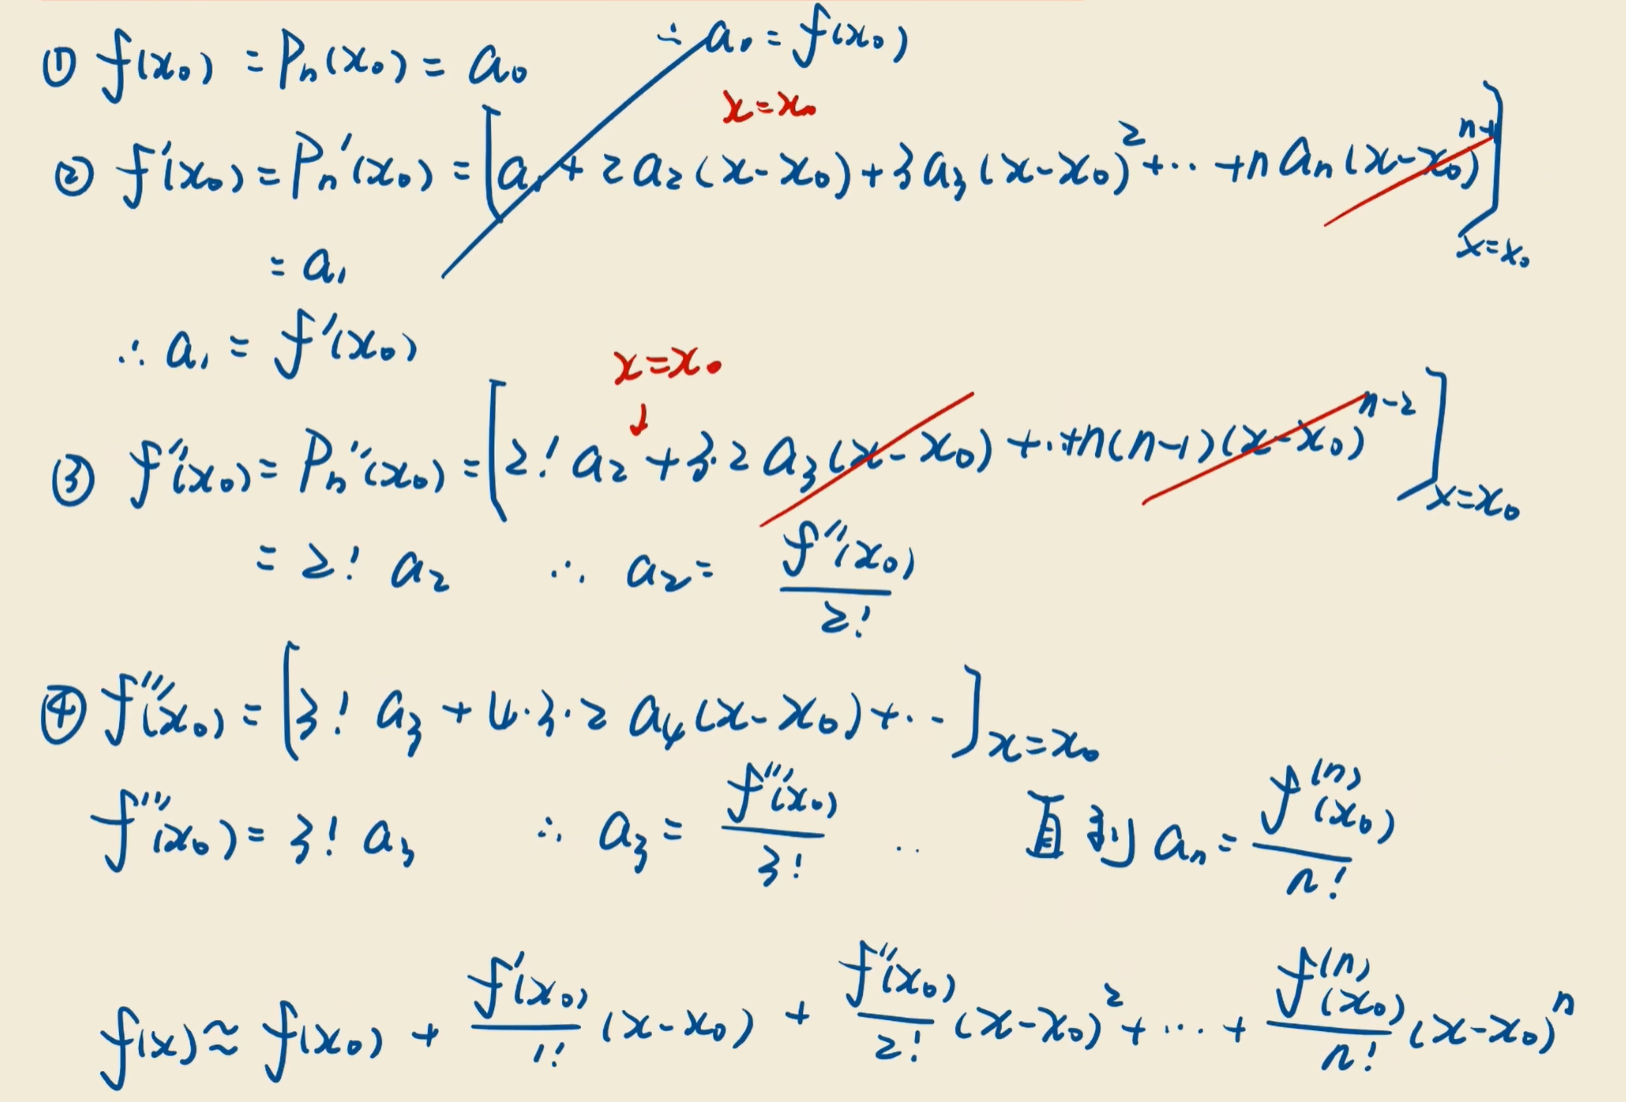 ① f(x₀) = Pₙ(x₀) = a₀ ∴ a₀ = f(x₀)
x=x₀
② f'(x₀) = Pₙ'(x₀) = [a₁ + 2a₂(x-x₀) + 3a₃(x-x₀)² + ··· + naₙ(x-x₀)ⁿ⁻¹]x=x₀
= a₁
∴ a₁ = f'(x₀)
x=x₀
↓
③ f''(x₀) = Pₙ''(x₀) = [2! a₂ + 3·2a₃(x-x₀) + ··+n(n-1)(x-x₀)ⁿ⁻²]x=x₀
= 2! a₂ ∴ a₂ = f''(x₀)/2!
④ f'''(x₀) = [3! a₃ + 4·3·2 a₄(x-x₀) + ···]x=x₀
f'''(x₀) = 3! a₃ ∴ a₃ = f'''(x₀)/3! ·· 直到 aₙ = f⁽ⁿ⁾(x₀)/n!
f(x) ≈ f(x₀) + f'(x₀)/1! (x-x₀) + f''(x₀)/2! (x-x₀)² + ··· + f⁽ⁿ⁾(x₀)/n! (x-x₀)ⁿ